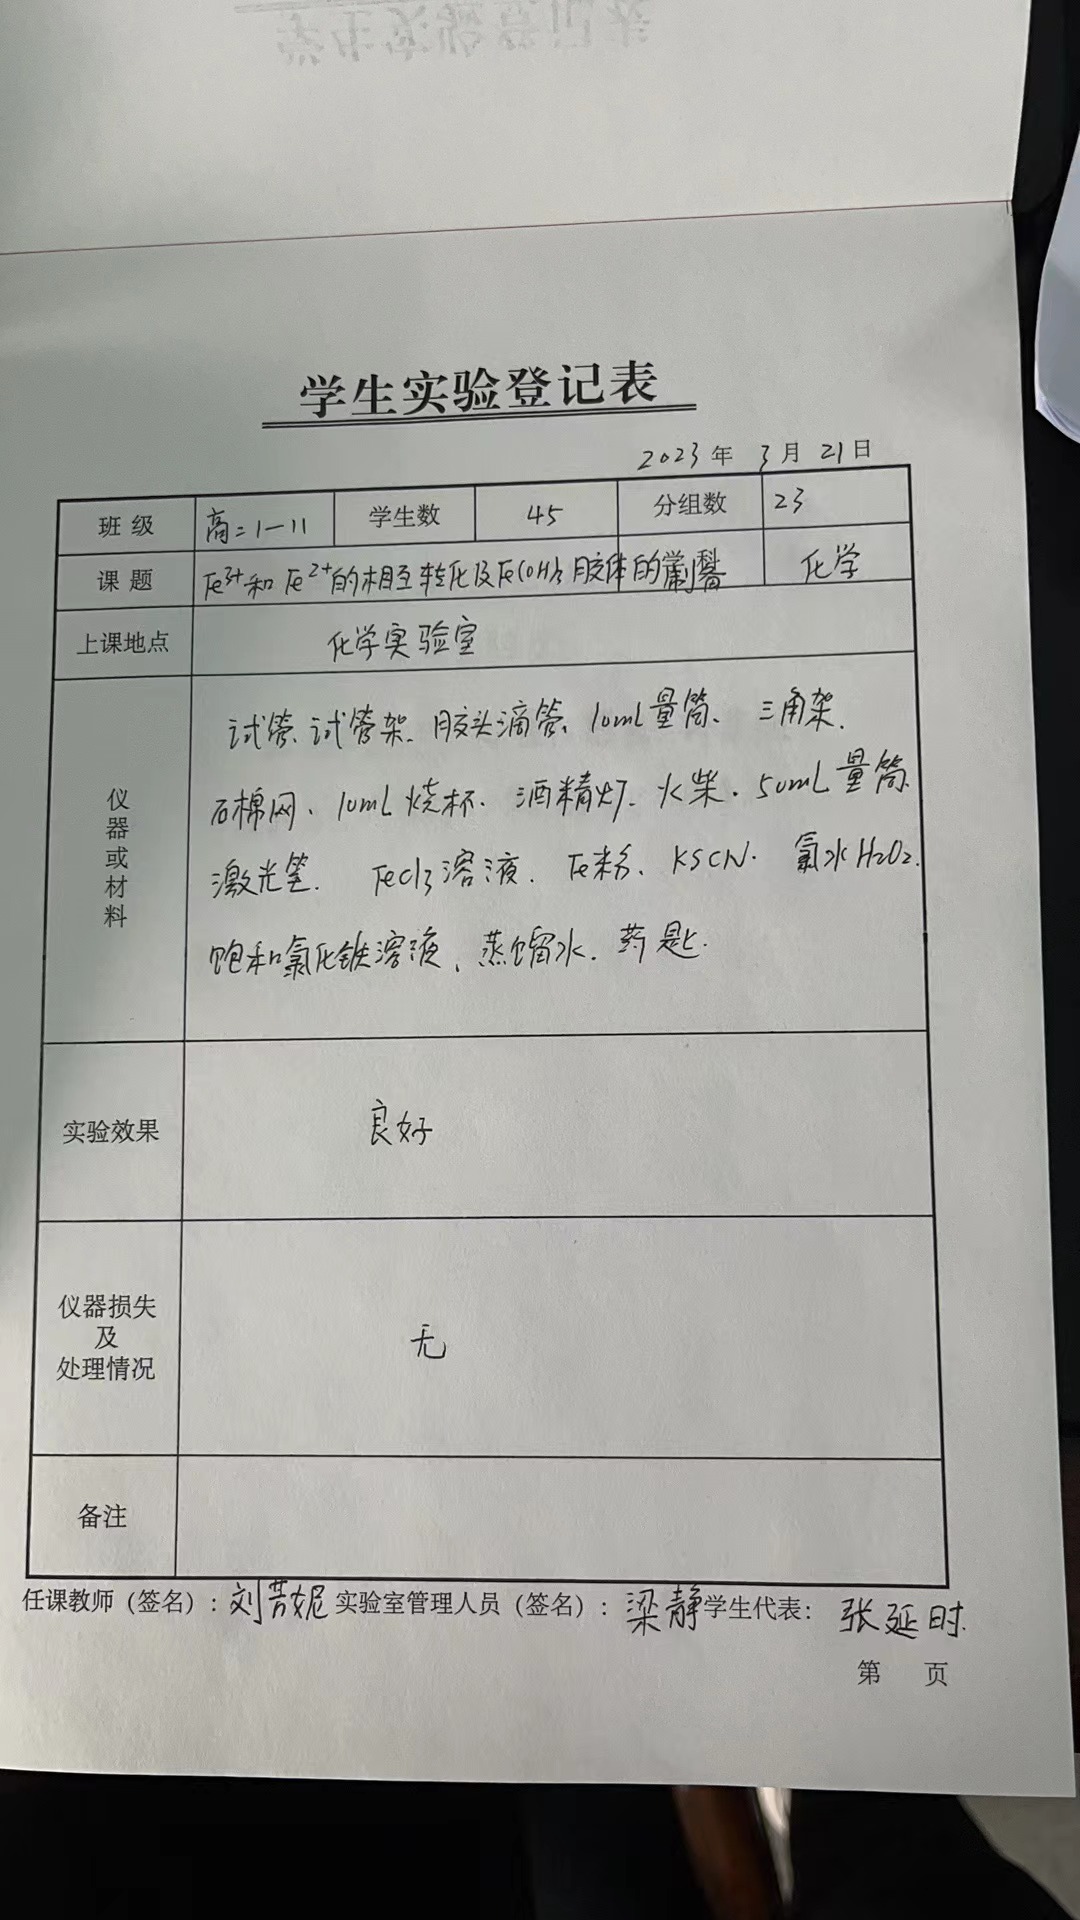 学生实验登记表
2023年 3月 21日
班级 高二1-11 学生数 45 分组数 23
课题 Fe³⁺和Fe²⁺的相互转化及Fe(OH)₃胶体的制备 化学
上课地点 化学实验室
仪器或材料
试管、试管架、胶头滴管、10mL量筒、三角架、
石棉网、10mL烧杯、酒精灯、火柴、50mL量筒、
激光笔、FeCl₃溶液、Fe粉、KSCN、氯水H₂O₂、
饱和氯化铁溶液、蒸馏水、药匙.
实验效果 良好
仪器损失
及
处理情况
无
备注
任课教师（签名）：刘芳妮 实验室管理人员（签名）：梁静 学生代表：张延时
第 页